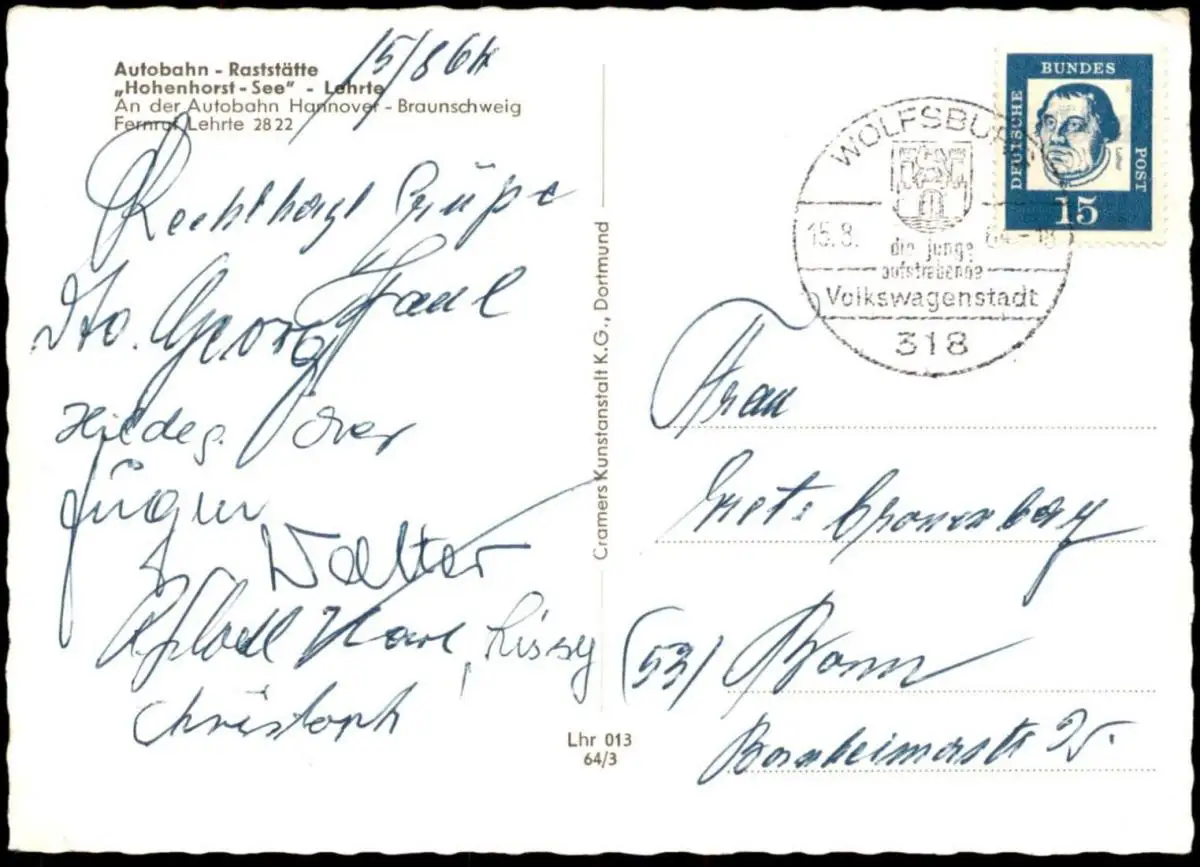 15/8 64
Autobahn - Raststätte
„Hohenhorst - See" - Lehrte
An der Autobahn Hannover - Braunschweig
Fernruf Lehrte 28 22
Grüße
Georg
Jürgen
Walter
Karl, Lissy
Christoph
Cramers Kunstanstalt K.G., Dortmund
Lhr 013
64/3
DEUTSCHE
BUNDES
POST
15
WOLFSBURG
15.8. 64-18
die junge
aufstrebende
Volkswagenstadt
318
Frau
(53) Bonn
Bornheimerstr